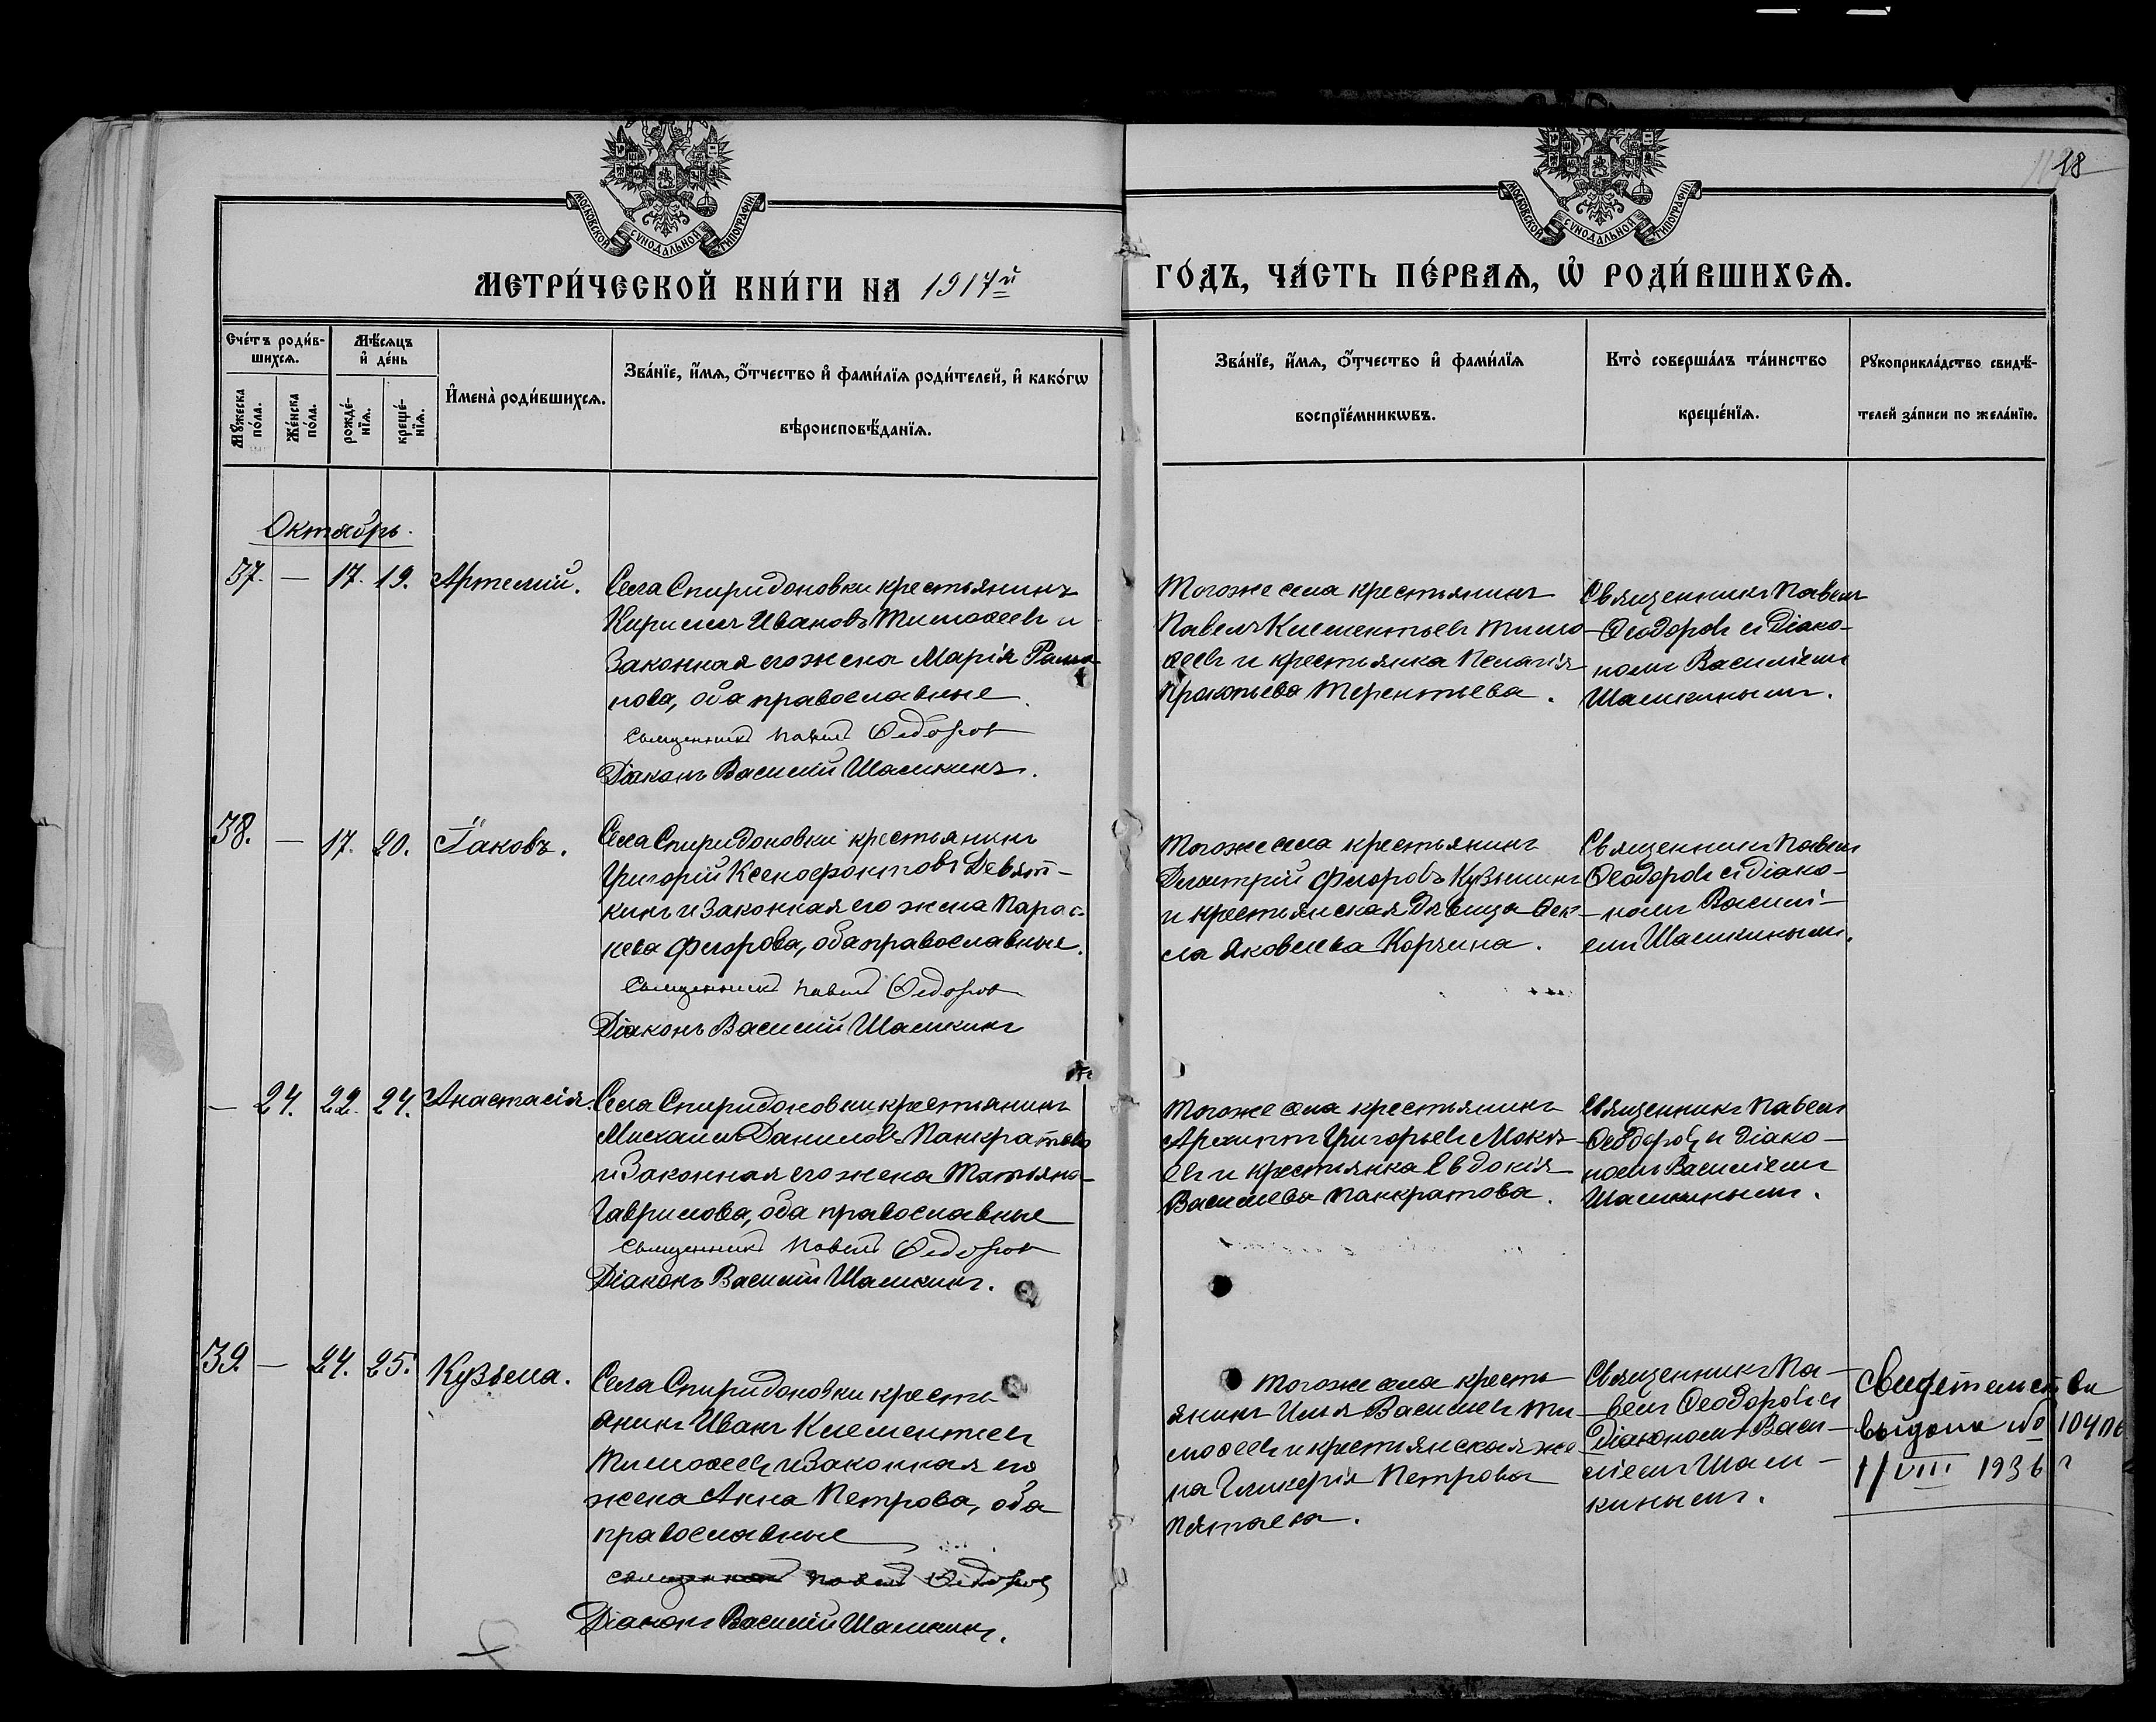 18
МОСКОВСКОЙ СѴНОДАЛЬНОЙ ТИПОГРАФІИ
МОСКОВСКОЙ СѴНОДАЛЬНОЙ ТИПОГРАФІИ
МЕТРИ́ЧЕСКОЙ КНИ́ГИ НА 1917й
ГО́ДЪ, ЧА́СТЬ ПЕ́РВАѦ, Ѡ҆ РОДИ́ВШИХСѦ.
Сче́тъ роди́в-
шихсѧ.
Мꙋжеска по́ла.
Же́нска по́ла.
Мѣ́сѧцъ
и҆ де́нь
рожде́-нїѧ.
креще́-нїѧ.
И҆мена̀ роди́вшихсѧ.
Зва́нїе, и҆́мѧ, ѻ҆́тчество и҆ фами́лїѧ роди́телей, и҆ како́гѡ
вѣроисповѣ́данїѧ.
Зва́нїе, и҆́мѧ, ѻ҆́тчество и҆ фами́лїѧ
воспрїе́мникѡвъ.
Кто̀ соверша́лъ та́инство
креще́нїѧ.
Рꙋкоприкла́дство свидѣ́-
телей за́писи по жела́нїю.
Октябрь.
37. — 17. 19. Артемій.
Села Спиридоновки крестьянинъ
Кириллъ Ивановъ Тимоѳеевъ и
законная его жена Марія Рома-
нова, оба православные.
Священникъ Павелъ Ѳедоров
Діаконъ Василій Шамкинъ.
Тогоже села крестьянинъ
Павелъ Клементьевъ Тимо-
ѳеевъ и крестьянка Пелагія
Прокопьева Терентьева.
Священникъ Павелъ
Ѳеодоровъ съ Діако-
номъ Василіемъ
Шамкинымъ.
38. — 17. 20. Іаковъ.
Села Спиридоновки крестьянинъ
Григорій Ксенофонтовъ Девят-
кинъ и законная его жена Парас-
кева Фегорова, оба православные.
Священникъ Павелъ Ѳедоров
Діаконъ Василій Шамкинъ
Тогоже села крестьянинъ
Димитрій Фегоровъ Кузьминъ
и крестьянская девица Ѳек-
ла Яковлева Корчина.
Священникъ Павелъ
Ѳеодоровъ съ діако-
номъ Васили-
емъ Шамкинымъ.
— 24. 22. 24. Анастасія.
Села Спиридоновки крестьянинъ
Михаилъ Даниловъ Панкратовъ
и законная его жена Татьяна
Гаврилова, оба православные
Священникъ Павелъ Ѳедоров
Діаконъ Василій Шамкинъ.
Тогоже села крестьянинъ
Архиппъ Григорьевъ Моке-
евъ и крестьянка Евдокія
Васильева Панкратова.
Священникъ Павелъ
Ѳеодоровъ съ Діако-
номъ Василіемъ
Шамкинымъ.
39. — 24. 25. Кузьма.
Села Спиридоновки кресть-
янинъ Иванъ Клементьевъ
Тимоѳеевъ и законная его
жена Анна Петрова, оба
православные
священникъ Павелъ Ѳедоров
Діаконъ Василій Шамкинъ.
Тогоже села кресть-
янинъ Илья Васильевъ Ти-
моѳеевъ и крестьянская же-
на Гликерія Петрова
Пятаева.
Священникъ Па-
велъ Ѳеодоровъ съ
Діакономъ Васи-
ліемъ Шам-
кинымъ.
Свидетельство
выдано №
VIII 1936 г